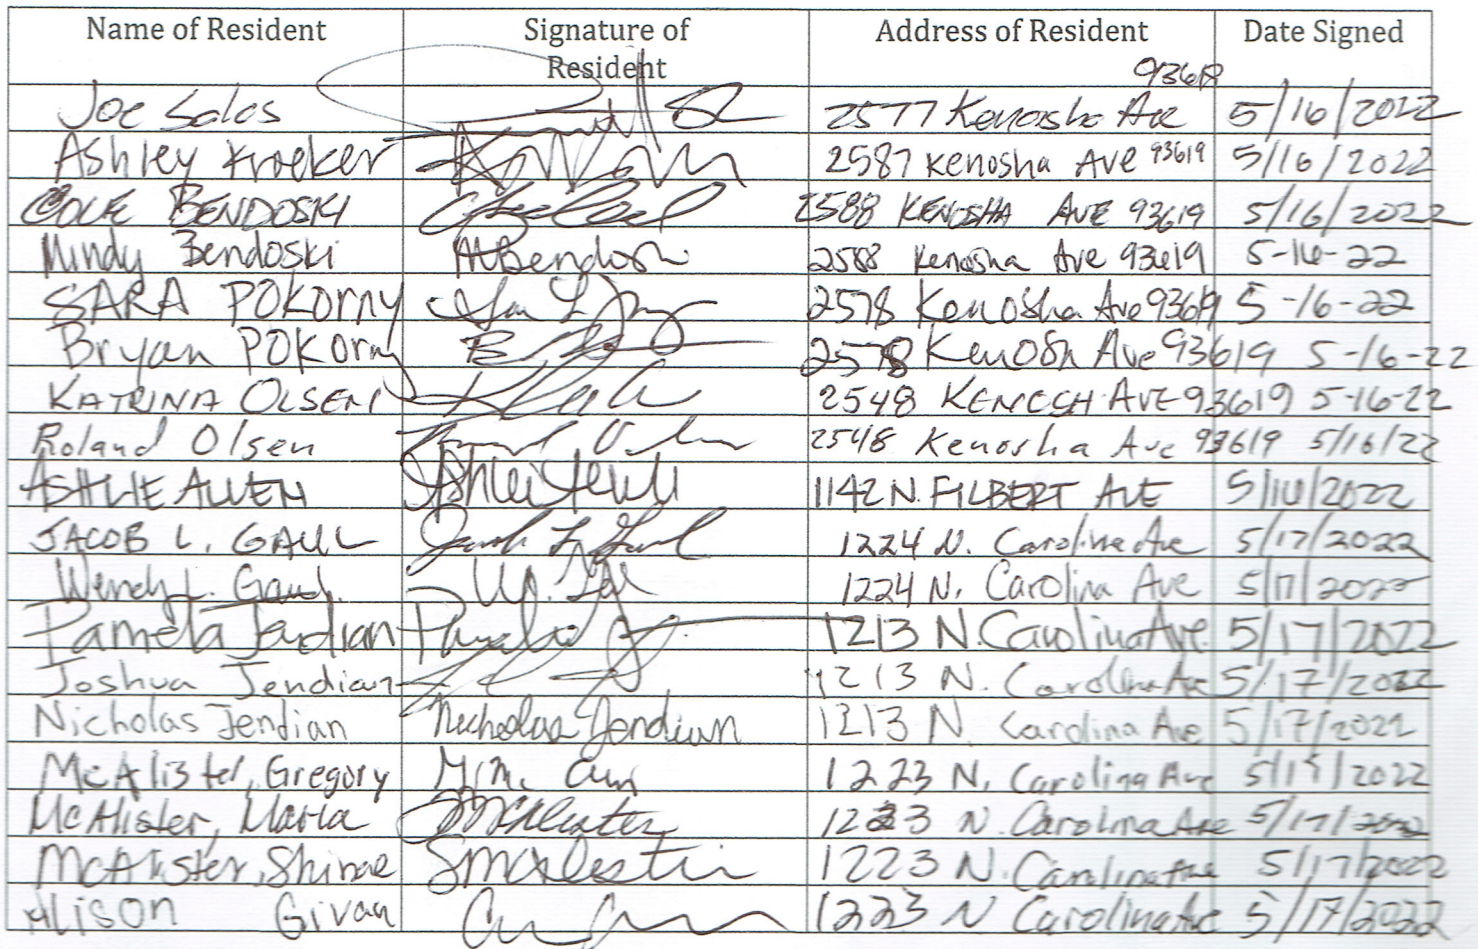 Name of Resident Signature of Resident Address of Resident Date Signed
93619
Joe Salas 2577 Kenosha Ave 5/16/2022
Ashley Kroeker 2587 Kenosha Ave 93619 5/16/2022
COLE BENDOSKI 2588 KENOSHA AVE 93619 5/16/2022
Mindy Bendoski MBendosk 2588 Kenosha Ave 93619 5-16-22
SARA POKORNY 2578 Kenosha Ave 93619 5-16-22
Bryan POKORNY 2578 Kenosh Ave 93619 5-16-22
KATRINA OLSEN 2548 KENOSH AVE 93619 5-16-22
Roland Olsen 2548 Kenosha Ave 93619 5/16/22
ASHLIE ALLEN 1142 N. FILBERT AVE 5/16/2022
JACOB L. GAUL Jacob L Gaul 1224 N. Carolina Ave 5/17/2022
Wendy L. Gaul W. Gaul 1224 N. Carolina Ave 5/17/2022
Pamela Jendian Pamela J 1213 N. Carolina Ave. 5/17/2022
Joshua Jendian 1213 N. Carolina Ave 5/17/2022
Nicholas Jendian Nicholas Jendian 1213 N. Carolina Ave 5/17/2022
McAlister, Gregory 1223 N. Carolina Ave 5/17/2022
McAlister, Marla McAlister 1223 N. Carolina Ave 5/17/2022
McAlister, Shirae SMcAlister 1223 N. Carolina Ave 5/17/2022
Alison Givan 1223 N Carolina Ave 5/17/2022